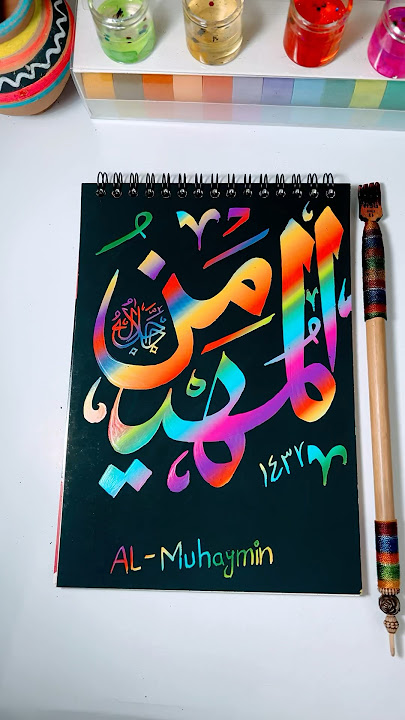 المُهَيْمِنُ
جَلَّ جَلَالُهُ
١٤٣٢
AL-Muhaymin